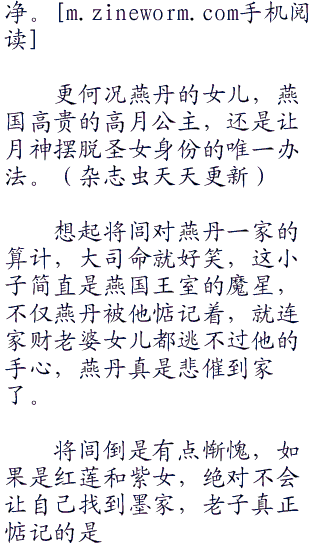 净。[m.zineworm.com手机阅
读]
更何况燕丹的女儿，燕
国高贵的高月公主，还是让
月神摆脱圣女身份的唯一办
法。（杂志虫天天更新）
想起将闾对燕丹一家的
算计，大司命就好笑，这小
子简直是燕国王室的魔星，
不仅燕丹被他惦记着，就连
家财老婆女儿都逃不过他的
手心，燕丹真是悲催到家
了。
将闾倒是有点惭愧，如
果是红莲和紫女，绝对不会
让自己找到墨家，老子真正
惦记的是